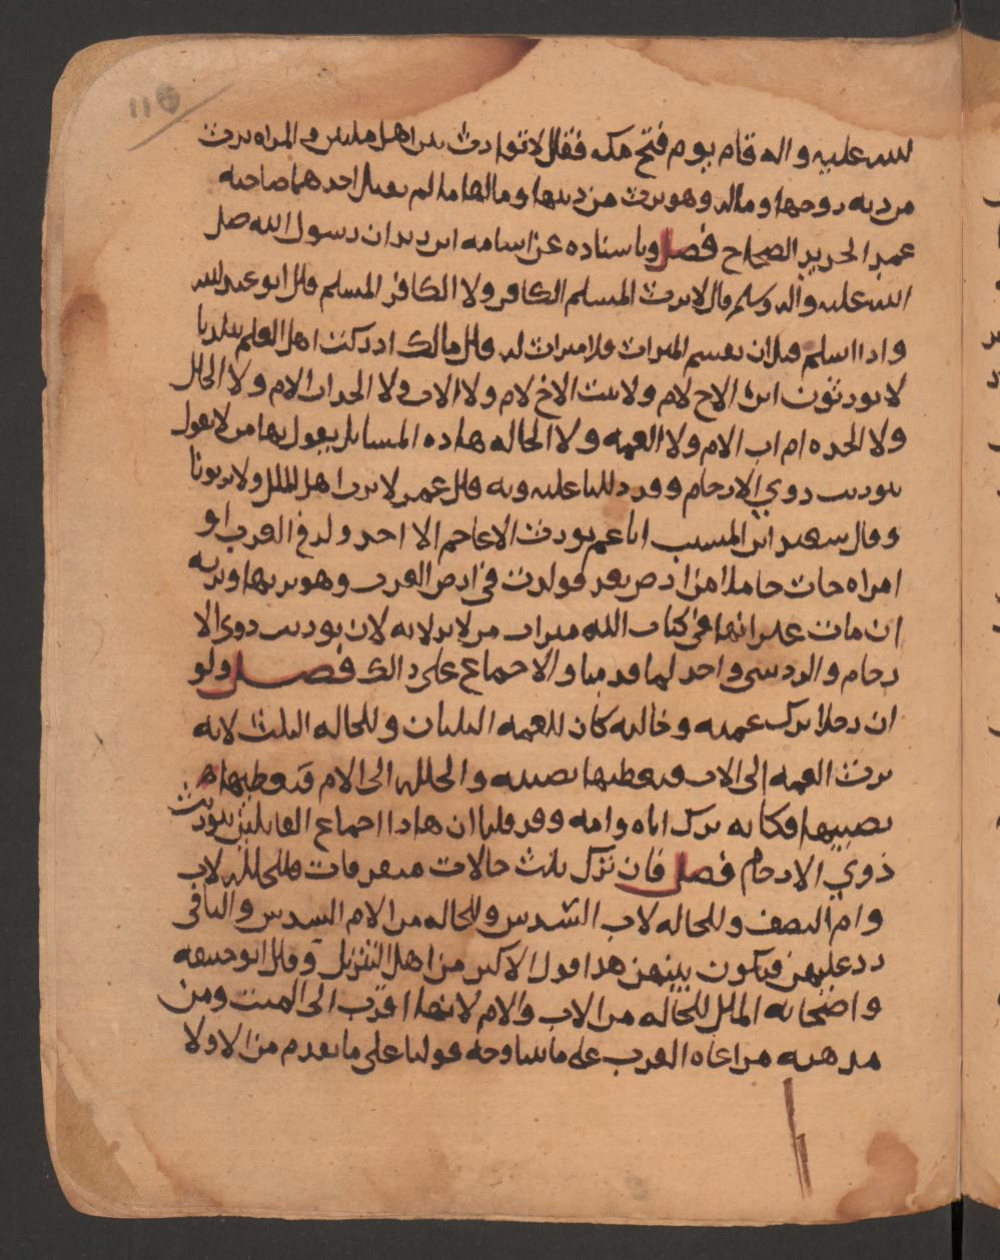 لله عليه واله قام يوم فتح مكه فقال لا توارث بين اهل ملتين والمراه ترث
من ديه زوجها وماله وهو يرث من ديتها ومالها ما لم يقتل احدهما صاحبه
عمد الحديث الصحاح فصل وباسناده عن اسامه ابن زيد ان رسول الله صل
الله عليه واله وسلم قال لا يرث المسلم الكافر ولا الكافر المسلم قال ابو عبدلله
واذا اسلم قبل ان يقسم الميراث فلا ميراث له قال مالك ادركت اهل العلم ببلدنا
لا يورثون ابن الاخ لام ولا بنت الاخ لام ولا الاب ولا الجد اب الام ولا الخال
ولا الجده ام اب الام ولا العمه ولا الخاله هاذه المسايل يقول بها من لا يقول
بتوريث ذوي الارحام وقد دللنا عليه وبه قال عمر لا نرث اهل الملل ولا يرثونا
وقال سعيد ابن المسيب ابا عمر يورث الاعاجم الا احد ولد في العرب او
امراه جات حاملا من ارض فولدت في ارض العرب وهو يرثها وترثه
ان مات ميراثها في كتاب الله ميراث من لا يرلا به لان توريث ذوي الا
رحام والرد شي واحد لما قدمنا والاجماع على ذالك فصل ولو
ان رجلا ترك عمته وخالته كان للعمه الثلثان وللخاله الثلث لانه
ترث العمه الى الاب فيعطيها نصيبه والخاله الى الام فيعطيها
نصيبها فكانه ترك اباه وامه وقد قلنا ان هاذا اجماع القايلين بتوريث
ذوي الارحام فصل فان ترك ثلث خالات متفرقات فللخاله لاب
وام النصف وللخاله لاب السدس وللخاله من الام السدس والباقي
رد عليهن فيكون بينهن هذا قول الاكثر من اهل التنزيل وقال ابو حنيفه
واصحابه المال للخاله من الاب والام لانها اقرب الى الميت ومن
مذهبه مراعاه القرب على ما قولنا على ما تقدم من الاولا